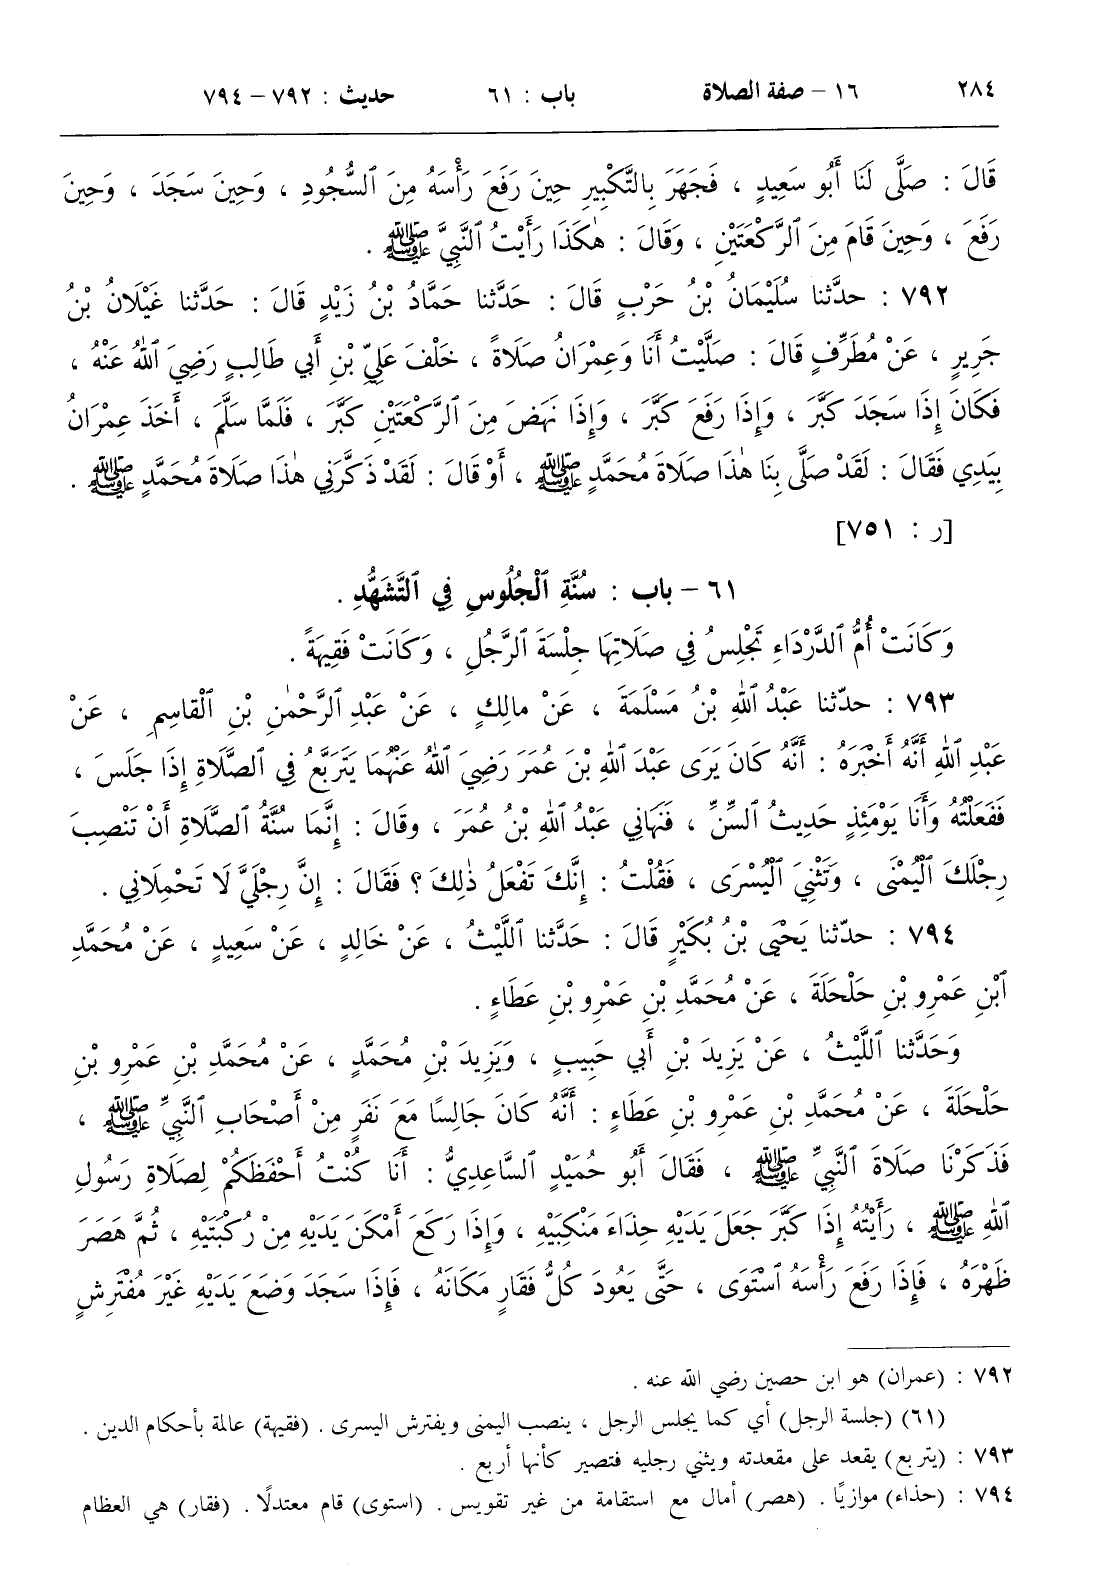 ٢٨٤ ١٦ – صفة الصلاة باب : ٦١ حديث : ٧٩٢ – ٧٩٤
قَالَ : صَلَّى لَنَا أَبُو سَعِيدٍ ، فَجَهَرَ بِالتَّكْبِيرِ حِينَ رَفَعَ رَأْسَهُ مِنَ ٱلسُّجُودِ ، وَحِينَ سَجَدَ ، وَحِينَ
رَفَعَ ، وَحِينَ قَامَ مِنَ ٱلرَّكْعَتَيْنِ ، وَقَالَ : هٰكَذَا رَأَيْتُ ٱلنَّبِيَّ ﷺ .
٧٩٢ : حدَّثنا سُلَيْمَانُ بْنُ حَرْبٍ قَالَ : حَدَّثنا حَمَّادُ بْنُ زَيْدٍ قَالَ : حَدَّثنا غَيْلَانُ بْنُ
جَرِيرٍ ، عَنْ مُطَرِّفٍ قَالَ : صَلَّيْتُ أَنَا وَعِمْرَانُ صَلَاةً ، خَلْفَ عَلِيِّ بْنِ أَبِي طَالِبٍ رَضِيَ ٱللهُ عَنْهُ ،
فَكَانَ إِذَا سَجَدَ كَبَّرَ ، وَإِذَا رَفَعَ كَبَّرَ ، وَإِذَا نَهَضَ مِنَ ٱلرَّكْعَتَيْنِ كَبَّرَ ، فَلَمَّا سَلَّمَ ، أَخَذَ عِمْرَانُ
بِيَدِي فَقَالَ : لَقَدْ صَلَّى بِنَا هٰذَا صَلَاةَ مُحَمَّدٍ ﷺ ، أَوْ قَالَ : لَقَدْ ذَكَّرَنِي هٰذَا صَلَاةَ مُحَمَّدٍ ﷺ .
[ر : ٧٥١]
٦١ – باب : سُنَّةِ ٱلْجُلُوسِ فِي ٱلتَّشَهُّدِ .
وَكَانَتْ أُمُّ ٱلدَّرْدَاءِ تَجْلِسُ فِي صَلَاتِهَا جِلْسَةَ ٱلرَّجُلِ ، وَكَانَتْ فَقِيهَةً .
٧٩٣ : حدّثنا عَبْدُ ٱللهِ بْنُ مَسْلَمَةَ ، عَنْ مالِكٍ ، عَنْ عَبْدِ ٱلرَّحْمٰنِ بْنِ ٱلْقَاسِمِ ، عَنْ
عَبْدِ ٱللهِ أَنَّهُ أَخْبَرَهُ : أَنَّهُ كَانَ يَرَى عَبْدَ ٱللهِ بْنَ عُمَرَ رَضِيَ ٱللهُ عَنْهُمَا يَتَرَبَّعُ فِي ٱلصَّلَاةِ إِذَا جَلَسَ ،
فَفَعَلْتُهُ وَأَنَا يَوْمَئِذٍ حَدِيثُ ٱلسِّنِّ ، فَنَهَانِي عَبْدُ ٱللهِ بْنُ عُمَرَ ، وقَالَ : إِنَّمَا سُنَّةُ ٱلصَّلَاةِ أَنْ تَنْصِبَ
رِجْلَكَ ٱلْيُمْنَى ، وَتَثْنِيَ ٱلْيُسْرَى ، فَقُلْتُ : إِنَّكَ تَفْعَلُ ذٰلِكَ ؟ فَقَالَ : إِنَّ رِجْلَيَّ لَا تَحْمِلَانِي .
٧٩٤ : حدّثنا يَحْيَى بْنُ بُكَيْرٍ قَالَ : حَدَّثنا ٱللَّيْثُ ، عَنْ خَالِدٍ ، عَنْ سَعِيدٍ ، عَنْ مُحَمَّدِ
ٱبْنِ عَمْرِو بْنِ حَلْحَلَةَ ، عَنْ مُحَمَّدِ بْنِ عَمْرِو بْنِ عَطَاءٍ .
وَحَدَّثنا ٱللَّيْثُ ، عَنْ يَزِيدَ بْنِ أَبِي حَبِيبٍ ، وَيَزِيدَ بْنِ مُحَمَّدٍ ، عَنْ مُحَمَّدِ بْنِ عَمْرِو بْنِ
حَلْحَلَةَ ، عَنْ مُحَمَّدِ بْنِ عَمْرِو بْنِ عَطَاءٍ : أَنَّهُ كَانَ جَالِسًا مَعَ نَفَرٍ مِنْ أَصْحَابِ ٱلنَّبِيِّ ﷺ ،
فَذَكَرْنَا صَلَاةَ ٱلنَّبِيِّ ﷺ ، فَقَالَ أَبُو حُمَيْدٍ ٱلسَّاعِدِيُّ : أَنَا كُنْتُ أَحْفَظَكُمْ لِصَلَاةِ رَسُولِ
ٱللهِ ﷺ ، رَأَيْتُهُ إِذَا كَبَّرَ جَعَلَ يَدَيْهِ حِذَاءَ مَنْكِبَيْهِ ، وَإِذَا رَكَعَ أَمْكَنَ يَدَيْهِ مِنْ رُكْبَتَيْهِ ، ثُمَّ هَصَرَ
ظَهْرَهُ ، فَإِذَا رَفَعَ رَأْسَهُ ٱسْتَوَى ، حَتَّى يَعُودَ كُلُّ فَقَارٍ مَكَانَهُ ، فَإِذَا سَجَدَ وَضَعَ يَدَيْهِ غَيْرَ مُفْتَرِشٍ
٧٩٢ : (عمران) هو ابن حصين رضي الله عنه .
(٦١) (جلسة الرجل) أي كما يجلس الرجل ، ينصب اليمنى ويفترش اليسرى . (فقيهة) عالمة بأحكام الدين .
٧٩٣ : (يتربع) يقعد على مقعدته ويثني رجليه فتصير كأنها أربع .
٧٩٤ : (حذاء) موازيًا . (هصر) أمال مع استقامة من غير تقويس . (استوى) قام معتدلًا . (فقار) هي العظام